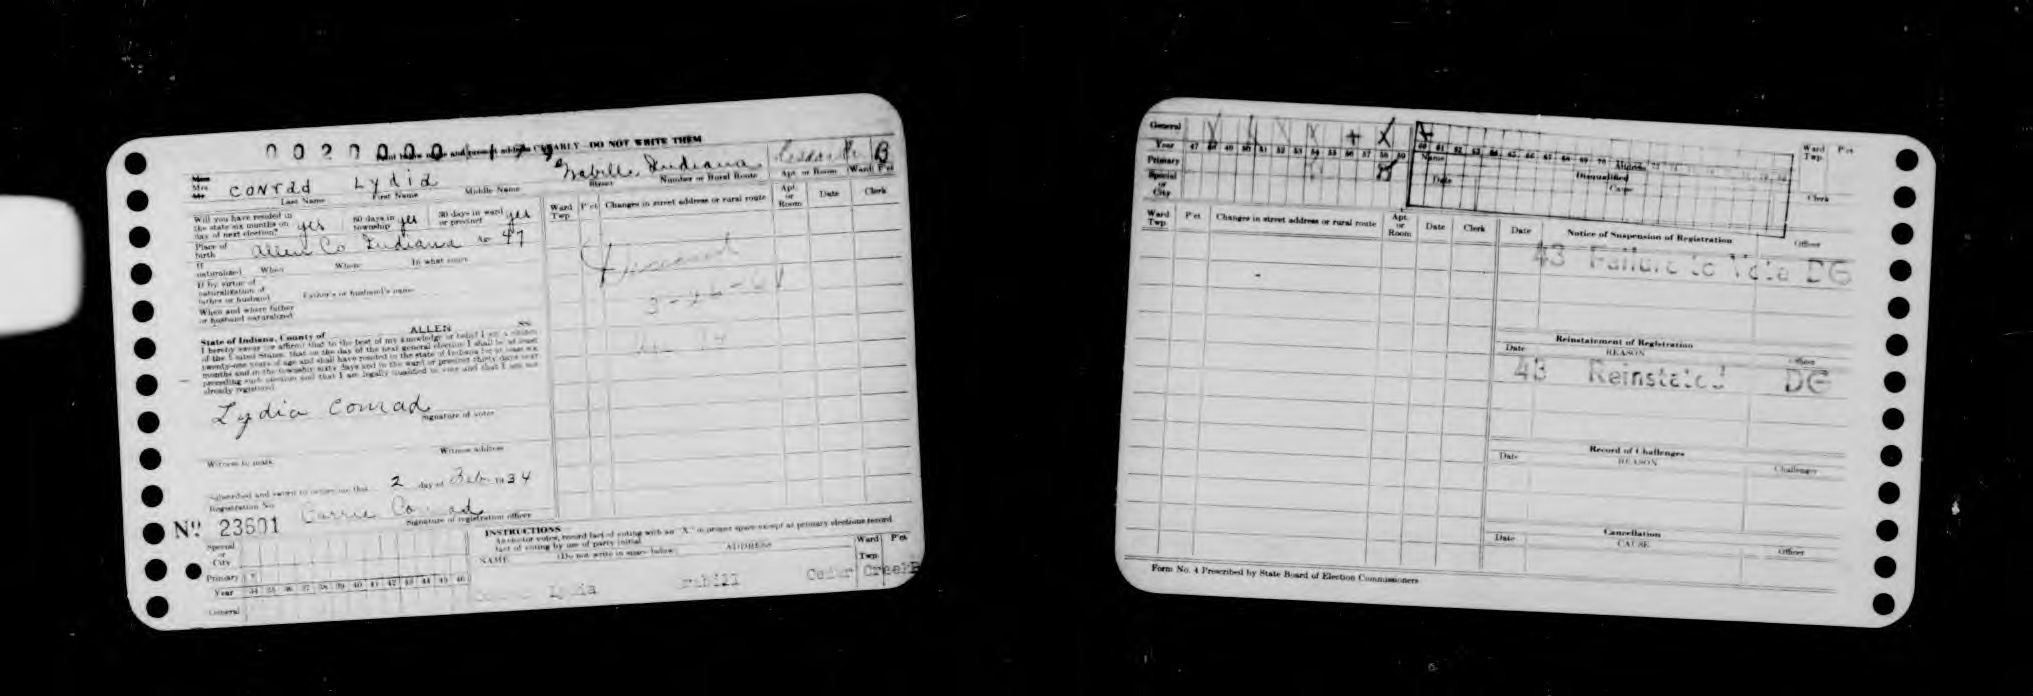 0020000 179
DO NOT WRITE THEM
Mrs. Conrad Lydia Grabill, Indiana Cedar Cr. B
Last Name First Name Middle Name Street Number or Rural Route Apt. or Room Ward P'ct
Will you have resided in the state six months on day of next election? yes 60 days in township yes 30 days in ward or precinct yes
Place of birth Allen Co Indiana Age 47
If naturalized When Where In what court
If by virtue of naturalization of father or husband Father's or husband's name
When and where father or husband naturalized
Ward Twp. P'ct Changes in street address or rural route Apt. or Room Date Clerk
Deceased
3-26-61
State of Indiana, County of ALLEN SS:
I hereby swear or affirm that to the best of my knowledge or belief I am a citizen
of the United States, that on the day of the next general election I shall be at least
twenty-one years of age and shall have resided in the state of Indiana for at least six
months and in the township sixty days and in the ward or precinct thirty days next
preceding such election and that I am legally qualified to vote and that I am not
already registered.
Lydia Conrad
Signature of voter
Witness to mark Witness address
Subscribed and sworn to before me this 2 day of Feb. 1934
Registration No.
No. 23601 Carrie Conrad
Signature of registration officer
Special or City
Primary
Year 34 35 36 37 38 39 40 41 42 43 44 45 46
General
INSTRUCTIONS
As elector votes, record fact of voting with an "X" in proper space except at primary elections record
fact of voting by use of party initial.
NAME (Do not write in space below) ADDRESS Ward Twp. P'ct
Lydia Grabill Cedar Creek B
General
Year 47 48 49 50 51 52 53 54 55 56 57 58 59 60 61 62 63 64 65 66 67 68 69 70
Primary
Special or City
Name
Disqualified
Date Cause
Ward Twp. P'ct
Clerk
Ward Twp. P'ct Changes in street address or rural route Apt. or Room Date Clerk
Date Notice of Suspension of Registration Officer
43 Failure to Vote DG
Reinstatement of Registration
Date REASON Officer
43 Reinstated DG
Record of Challenges
Date REASON Challenger
Cancellation
Date CAUSE Officer
Form No. 4 Prescribed by State Board of Election Commissioners